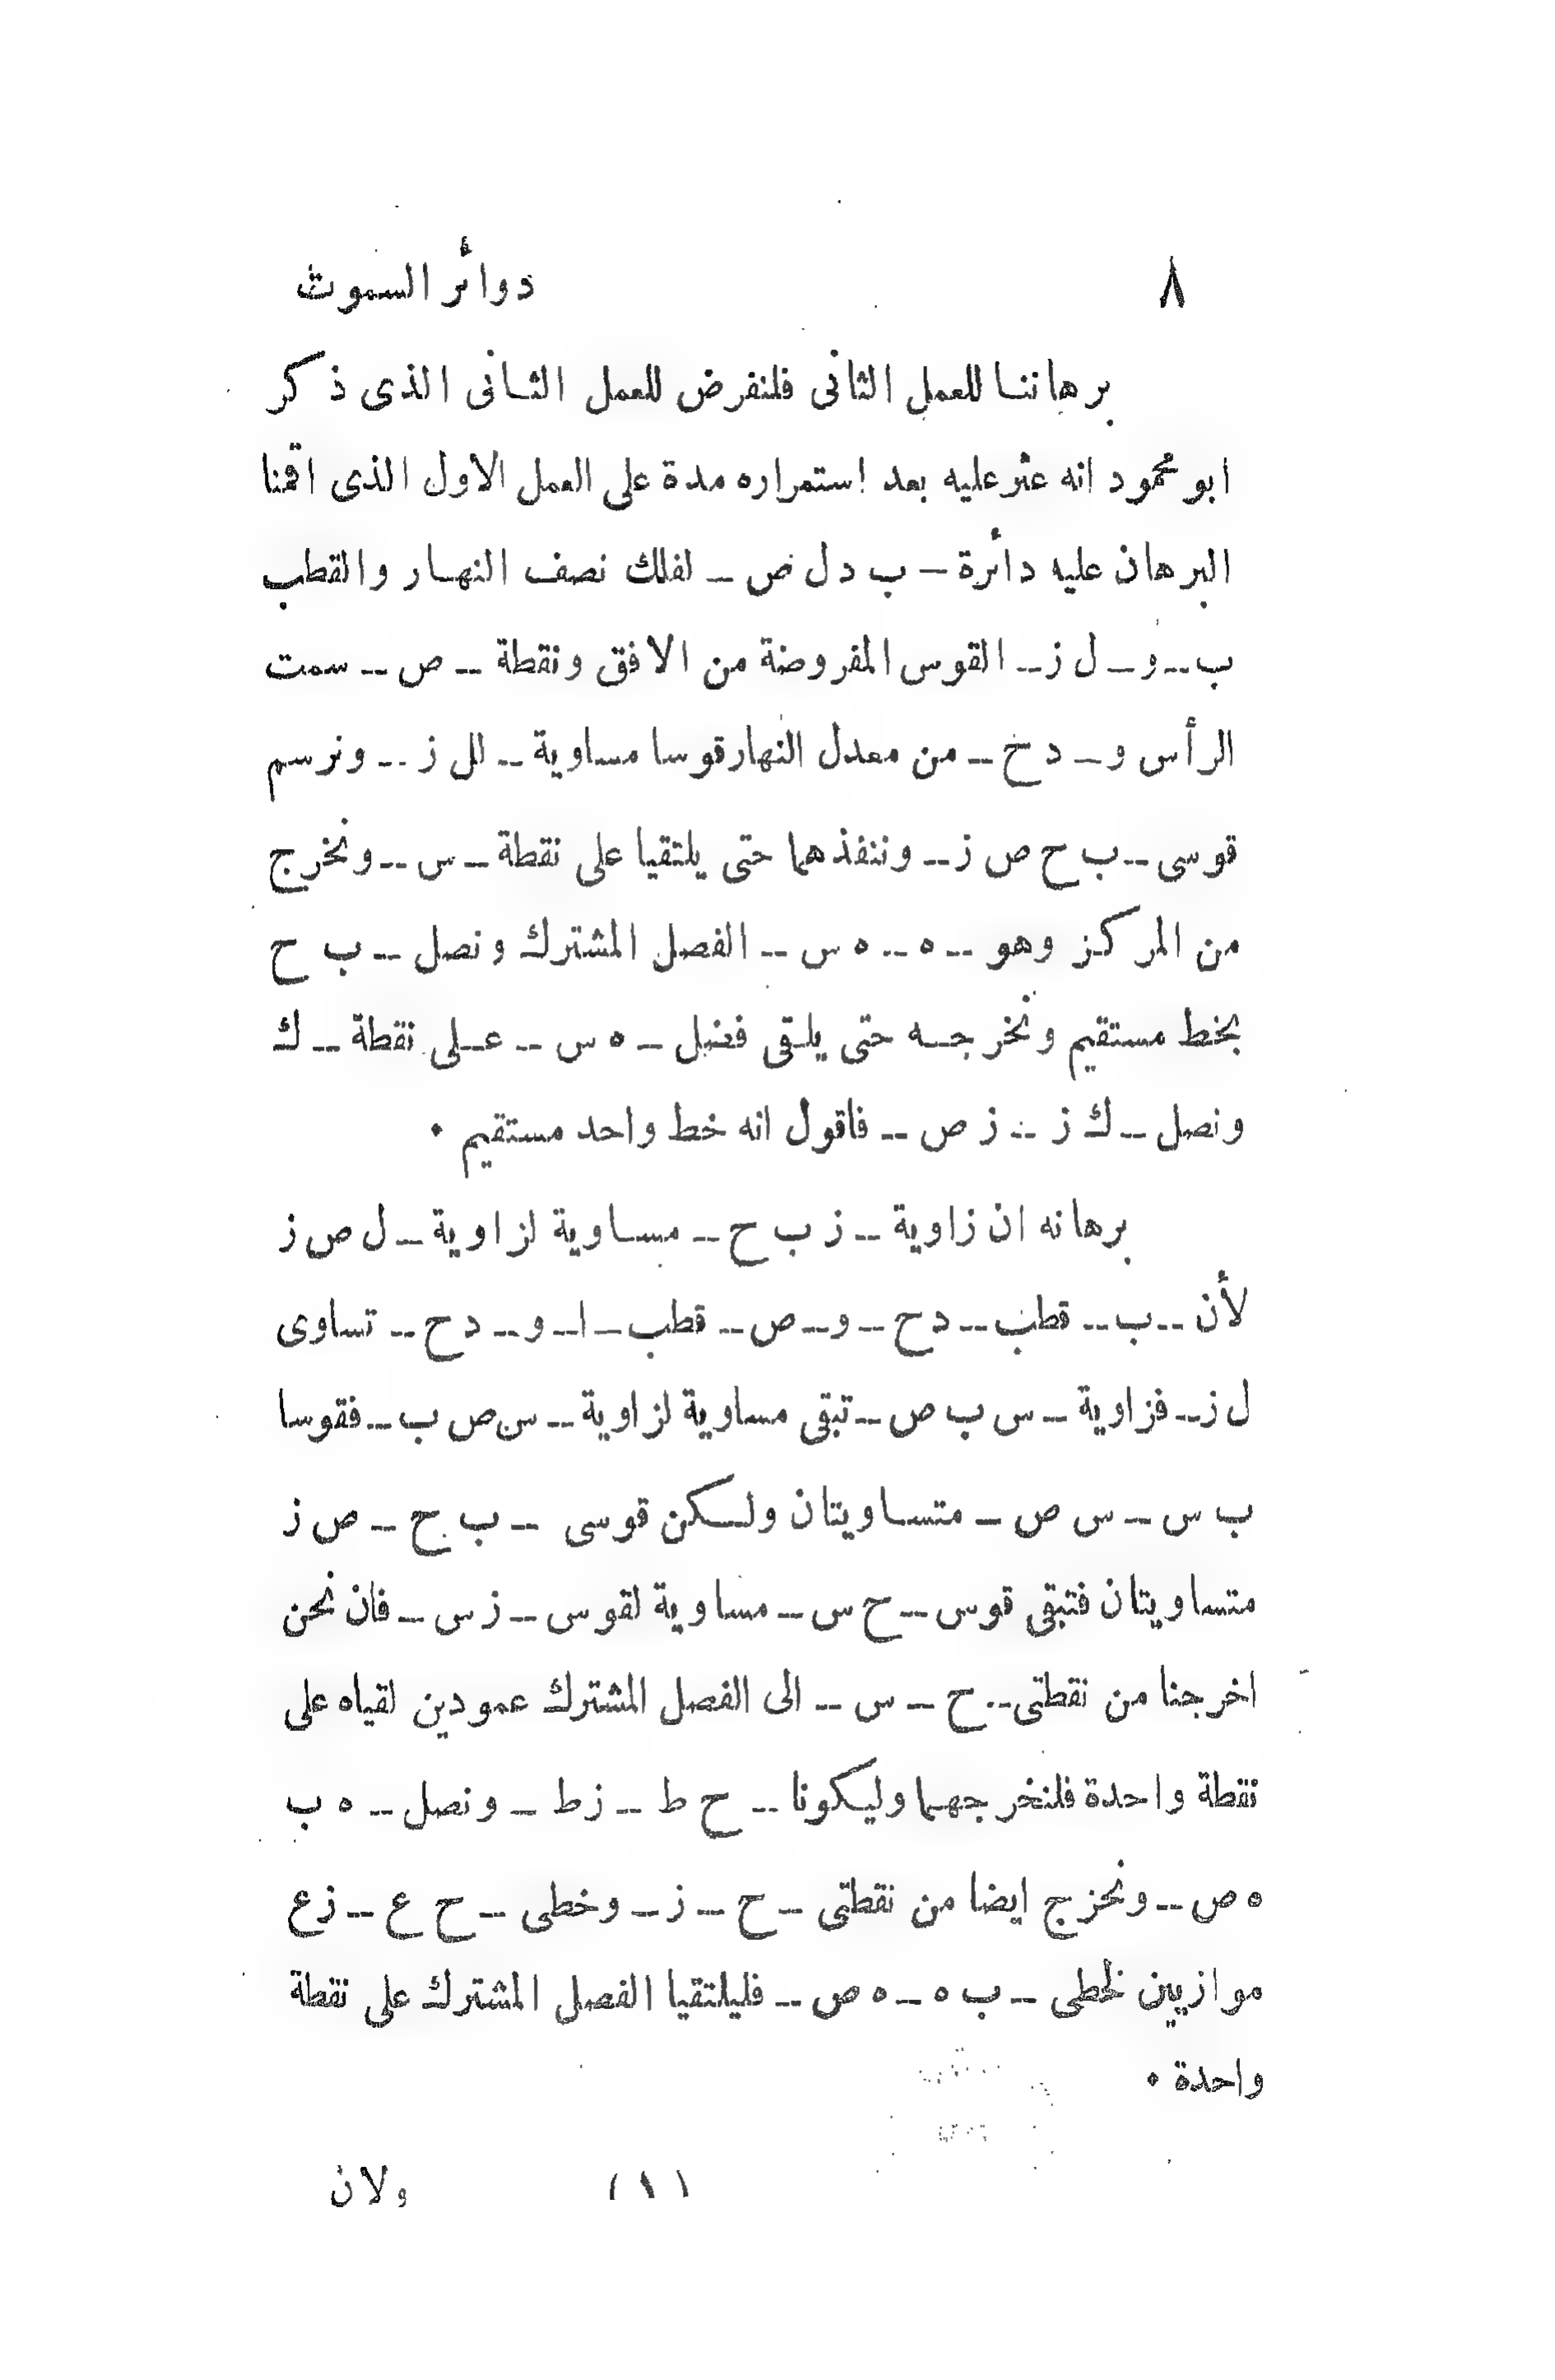 ٨ دوائر السموت
برهاننا للعمل الثانى فلنفرض للعمل الثانى الذى ذكر
ابو محمود انه عثر عليه بعد استمراره مدة على العمل الاول الذى اقمنا
البرهان عليه دائرة – ب د ل ص – لفلك نصف النهار والقطب
ب – و – ل ز – القوس المفروضة من الافق ونقطة – ص – سمت
الرأس و – د خ – من معدل النهار قوسا مساوية – لل ز – ونرسم
قوسى – ب ح ص ز – وننفذهما حتى يلتقيا على نقطة – س – ونخرج
من المركز وهو – ه – ه س – الفصل المشترك ونصل – ب ح
بخط مستقيم ونخرجه حتى يلقى فصل – ه س – على نقطة – ك
ونصل – ك ز – ز ص – فاقول انه خط واحد مستقيم ٠
برهانه ان زاوية – ز ب ح – مساوية لزاوية – ل ص ز
لأن – ب – قطب – د ح – و – ص – قطب – ا – و – د ح – تساوى
ل ز – فزاوية – س ب ص – تبقى مساوية لزاوية – س ص ب – فقوسا
ب س – س ص – متساويتان ولكن قوسى – ب ح – ص ز
متساويتان فتبقى قوس – ح س – مساوية لقوس – ز س – فان نحن
اخرجنا من نقطتى – ح – س – الى الفصل المشترك عمودين لقياه على
نقطة واحدة فلنخرجهما وليكونا – ح ط – ز ط – ونصل – ه ب
ه ص – ونخرج ايضا من نقطتى – ح – ز – وخطى – ح ع – ز ع
موازيين لخطى – ب ه – ه ص – فليلتقيا الفصل المشترك على نقطة
واحدة ٠
(١١) ولان